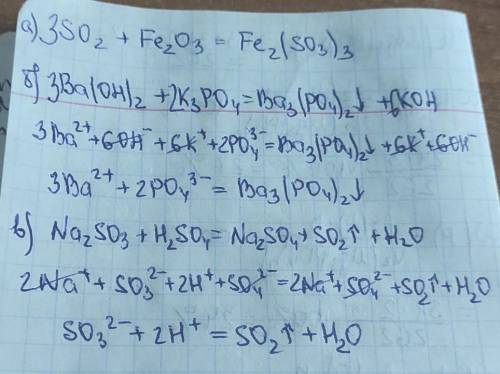 а) 3SO₂ + Fe₂O₃ = Fe₂(SO₃)₃
б) 3Ba(OH)₂ + 2K₃PO₄ = Ba₃(PO₄)₂↓ + 6KOH
3Ba²⁺ + 6OH⁻ + 6K⁺ + 2PO₄³⁻ = Ba₃(PO₄)₂↓ + 6K⁺ + 6OH⁻
3Ba²⁺ + 2PO₄³⁻ = Ba₃(PO₄)₂↓
в) Na₂SO₃ + H₂SO₄ = Na₂SO₄ + SO₂↑ + H₂O
2Na⁺ + SO₃²⁻ + 2H⁺ + SO₄²⁻ = 2Na⁺ + SO₄²⁻ + SO₂↑ + H₂O
SO₃²⁻ + 2H⁺ = SO₂↑ + H₂O